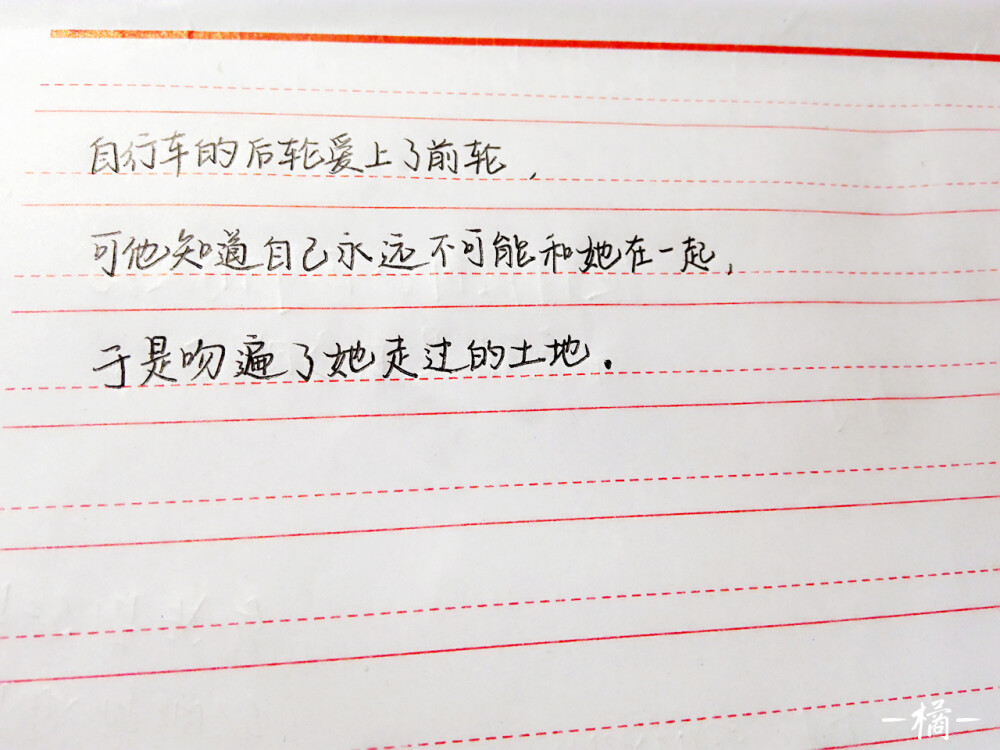 自行车的后轮爱上了前轮,
可他知道自己永远不可能和她在一起,
于是吻遍了她走过的土地.
-橘-